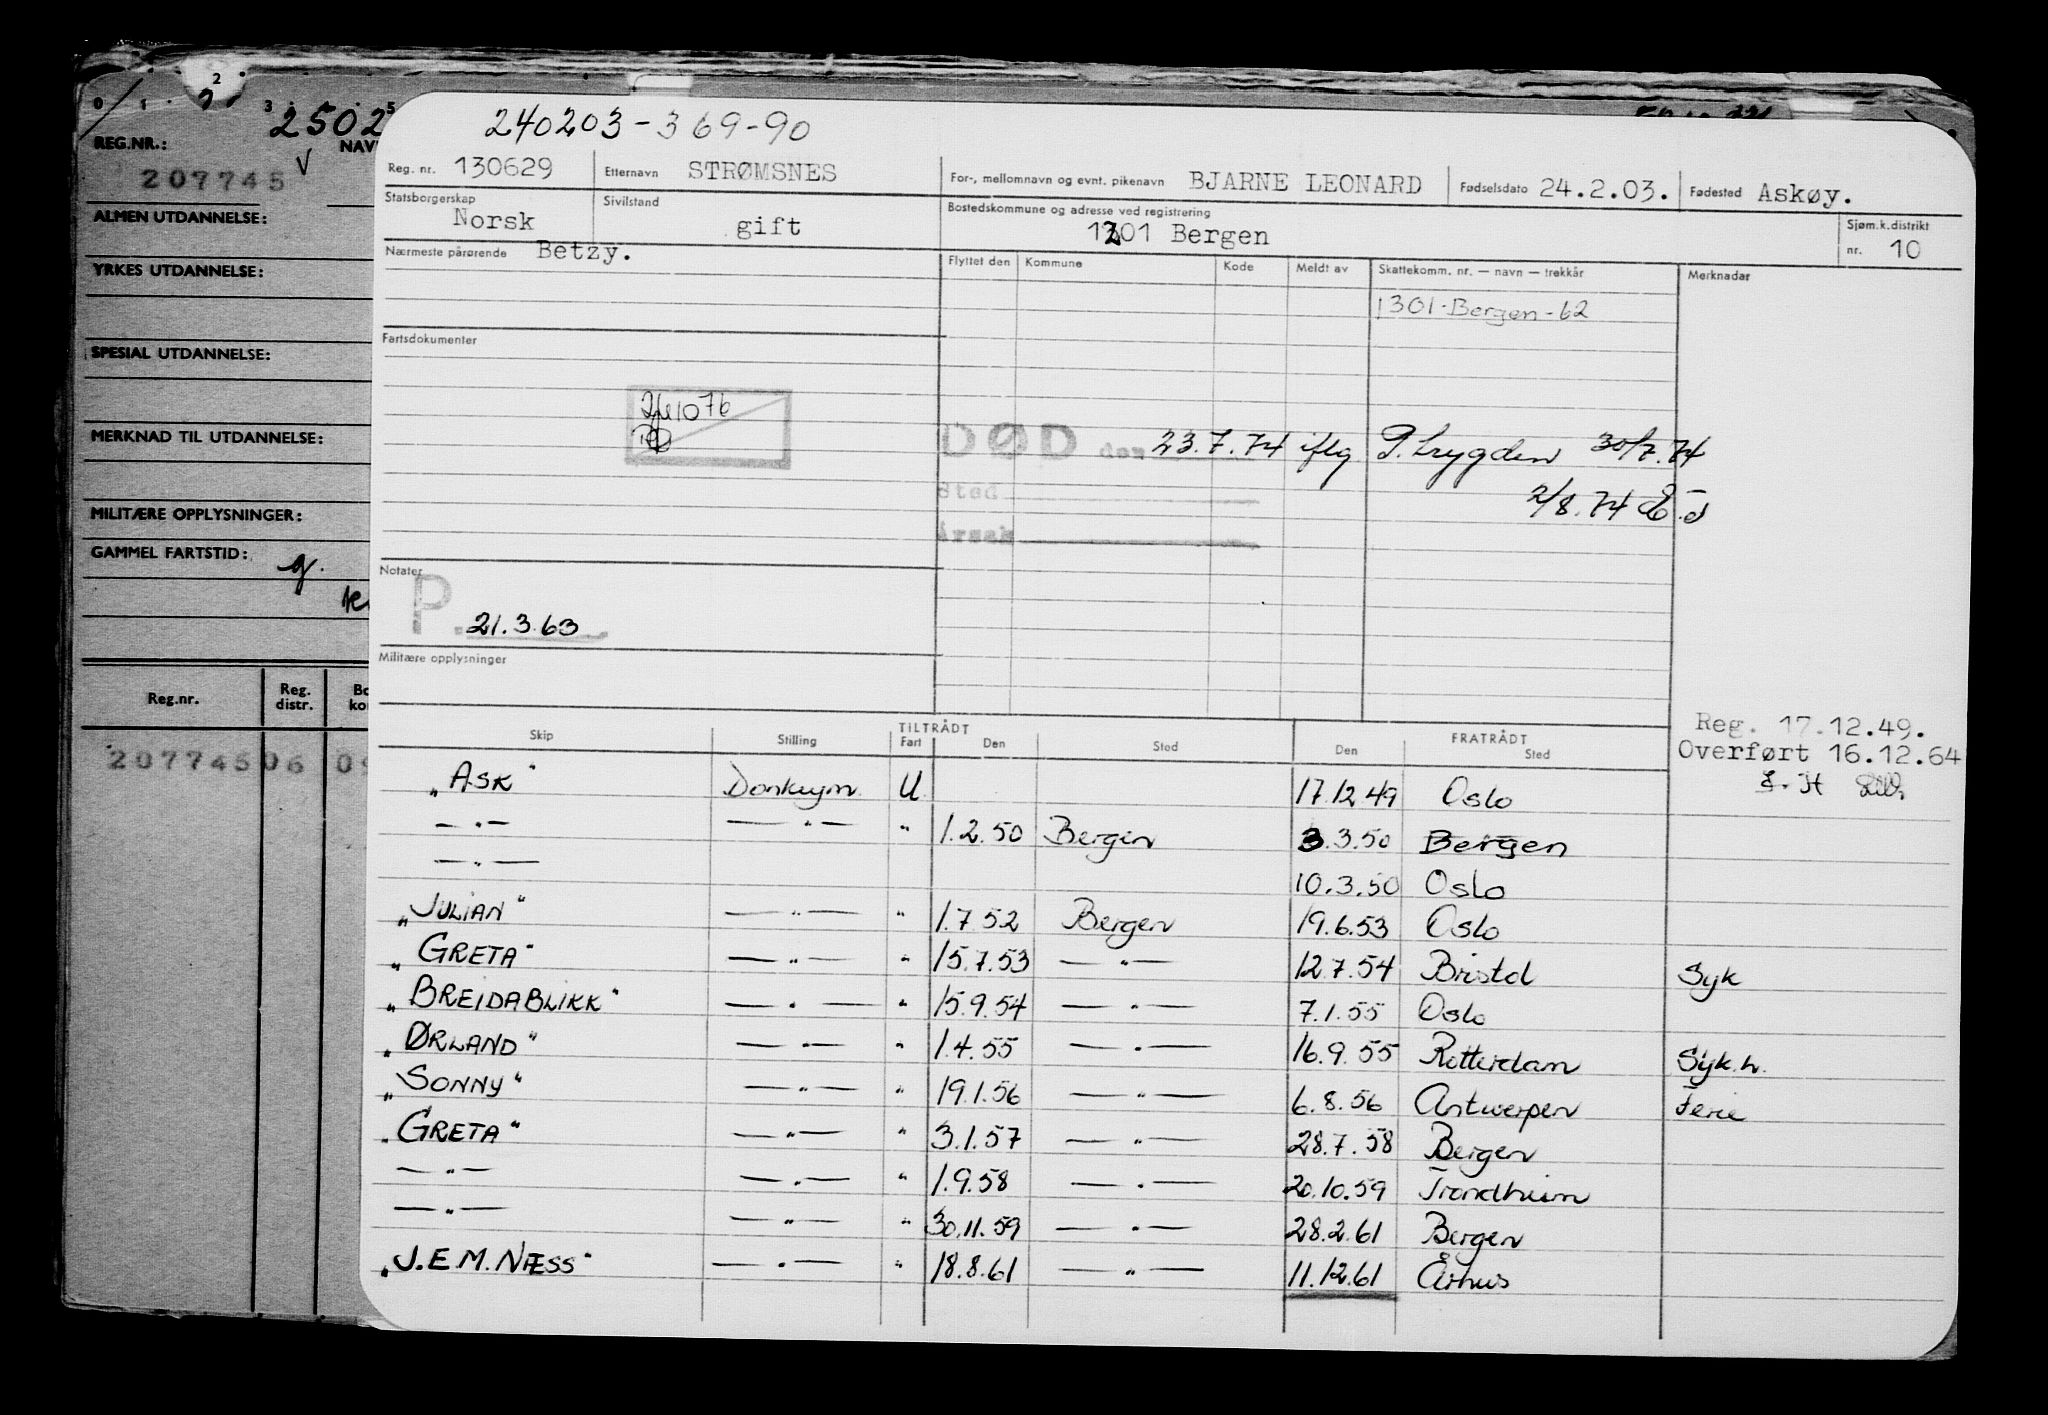 0 1 2 3 5
2502
REG.NR.: NAV
207745 V
ALMEN UTDANNELSE:
YRKES UTDANNELSE:
SPESIAL UTDANNELSE:
MERKNAD TIL UTDANNELSE:
MILITÆRE OPPLYSNINGER:
GAMMEL FARTSTID: g.
Reg.nr. Reg. distr. Bo ko
207745 06 09
240203-369-90
Reg. nr. 130629 Etternavn STRØMSNES For-, mellomnavn og evnt. pikenavn BJARNE LEONARD Fødselsdato 24.2.03. Fødested Askøy.
Statsborgerskap Norsk Sivilstand gift Bostedskommune og adresse ved registrering 1201 Bergen Sjøm.k.distrikt nr. 10
Nærmeste pårørende Betzy.
Flyttet den Kommune Kode Meldt av Skattekomm. nr. — navn — trekkår Merknadar
1301-Bergen-62
Fartsdokumenter
261076
DØD den 23.7.74 iflg P.trygden 30/7.74
Sted 2/8.74
Årsak
Notater
P. 21.3.63
Militære opplysninger
Reg. 17.12.49.
Overført 16.12.64
Skip Stilling TILTRÅDT Fart Den Sted FRATRÅDT Den Sted
"ASK" Donkeym. U 17.12.49 Oslo
— " — — " — " 1.2.50 Bergen 3.3.50 Bergen
— " — 10.3.50 Oslo
"JULIAN" — " — " 1.7.52 Bergen 19.6.53 Oslo
"GRETA" — " — " 15.7.53 — " — 12.7.54 Bristol Syk
"BREIDABLIKK" — " — " 15.9.54 — " — 7.1.55 Oslo
"ØRLAND" — " — " 1.4.55 — " — 16.9.55 Rotterdam Syk.h.
"SONNY" — " — " 19.1.56 — " — 6.8.56 Antwerpen Ferie
"GRETA" — " — " 3.1.57 — " — 28.7.58 Bergen
— " — — " — " 1.9.58 — " — 20.10.59 Trondheim
— " — — " — " 30.11.59 — " — 28.2.61 Bergen
"J.E.M.NÆSS" — " — " 18.8.61 — " — 11.12.61 Århus